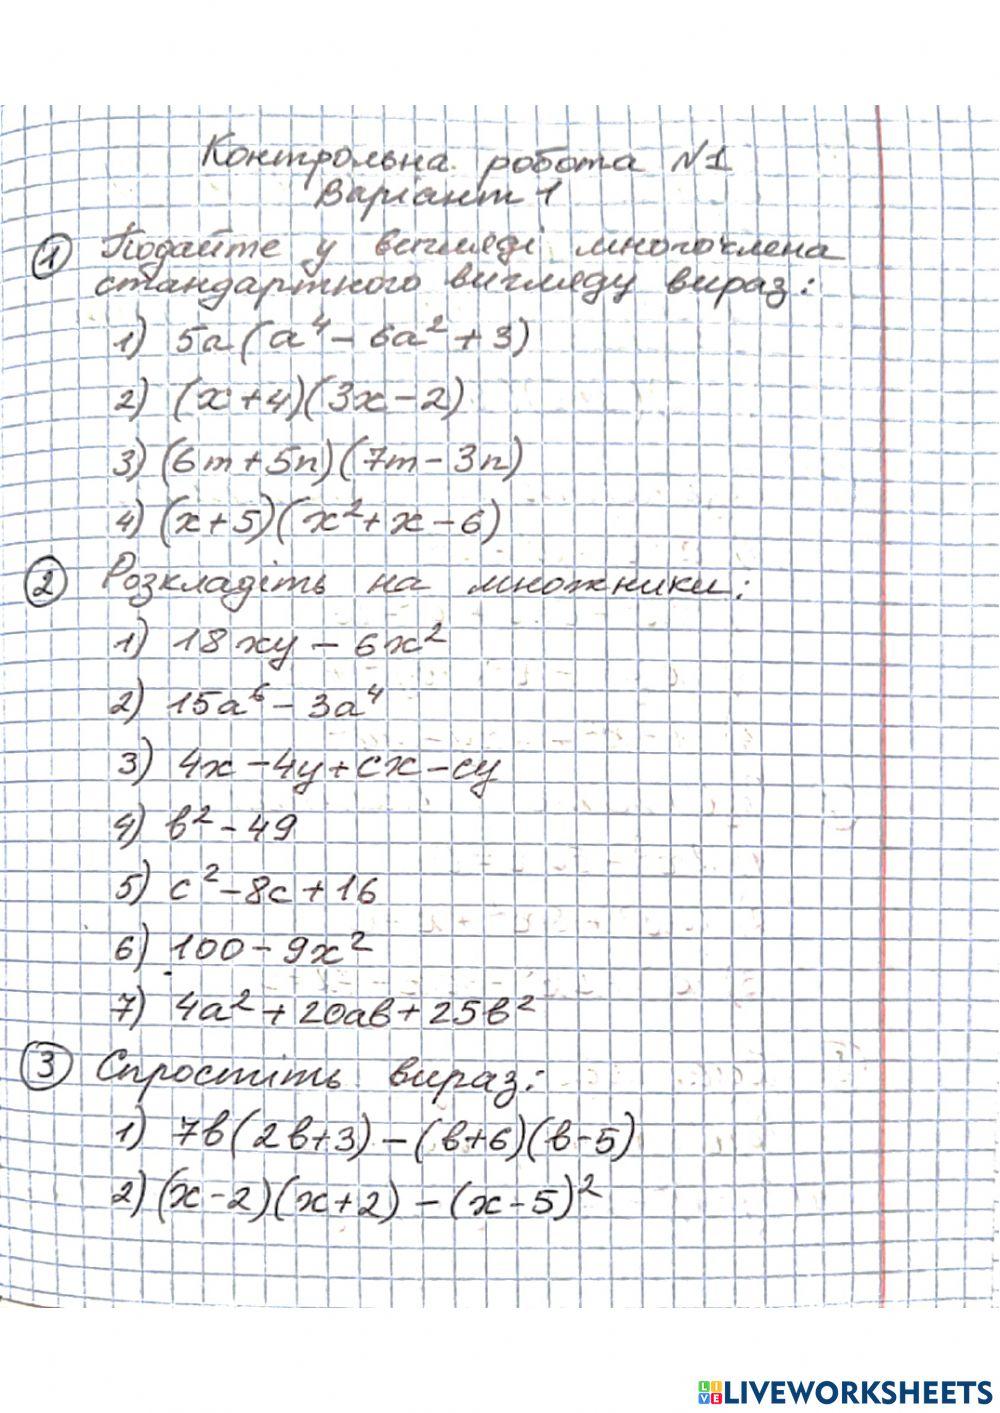 Контрольна робота №1
Варіант 1
1 Подайте у вигляді многочлена
стандартного вигляду вираз:
1) 5a(a⁴ - 6a² + 3)
2) (x+4)(3x-2)
3) (6m+5n)(7m-3n)
4) (x+5)(x²+x-6)
2 Розкладіть на множники:
1) 18xy - 6x²
2) 15a⁶ - 3a⁴
3) 4x-4y+cx-cy
4) b² - 49
5) c² - 8c + 16
6) 100 - 9x²
7) 4a² + 20ab + 25b²
3 Спростіть вираз:
1) 7b(2b+3) - (b+6)(b-5)
2) (x-2)(x+2) - (x-5)²
LIVEWORKSHEETS